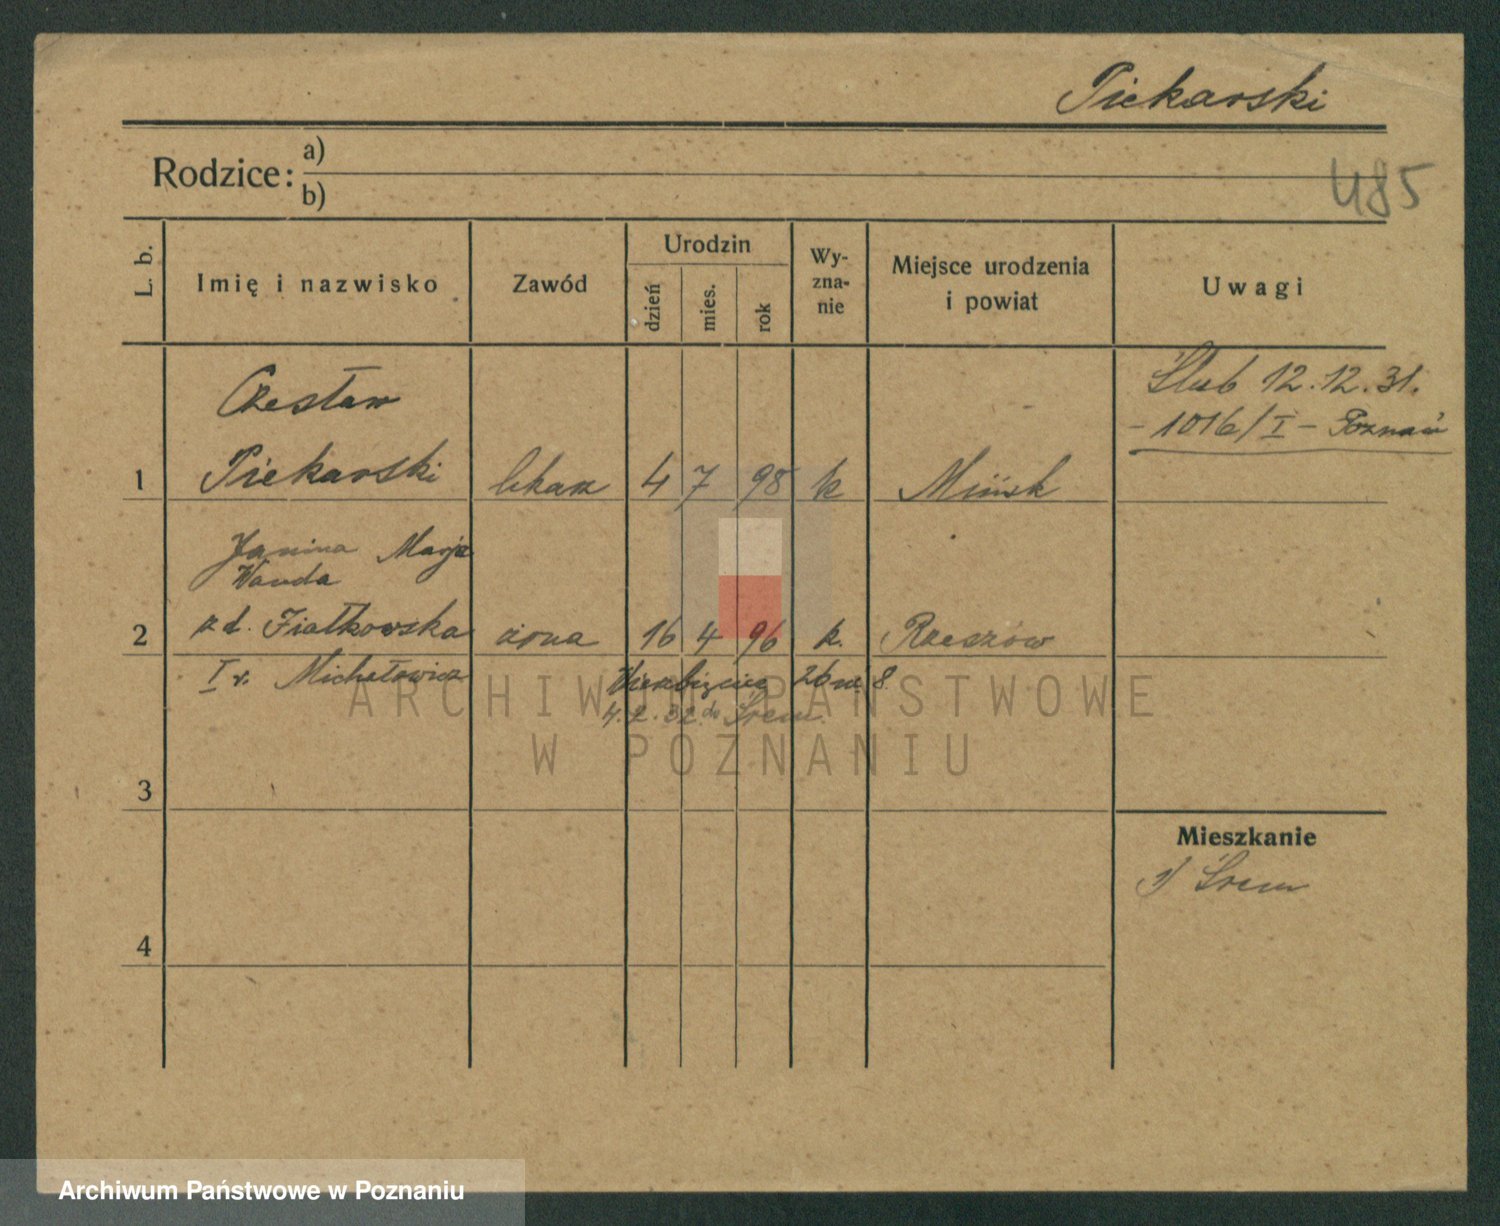 Piekarski
Rodzice:
a)
b)
485
L. b.
Imię i nazwisko
Zawód
Urodzin
dzień
mies.
rok
Wy-
zna-
nie
Miejsce urodzenia
i powiat
Uwagi
Czesław
Piekarski
1
lekarz
4
7
98
k
Mińsk
Ślub 12.12.31.
- 1016/I - Poznań
Janina Marja
Wanda
2
z d. Fiałkowska
żona
16
4
96
k.
Rzeszów
I v. Michałowicz
Wierzbięcice 26 m. 8.
4.2.32. do Śrem.
3
4
Mieszkanie
1) Śrem
ARCHIWUM PAŃSTWOWE
W POZNANIU
Archiwum Państwowe w Poznaniu